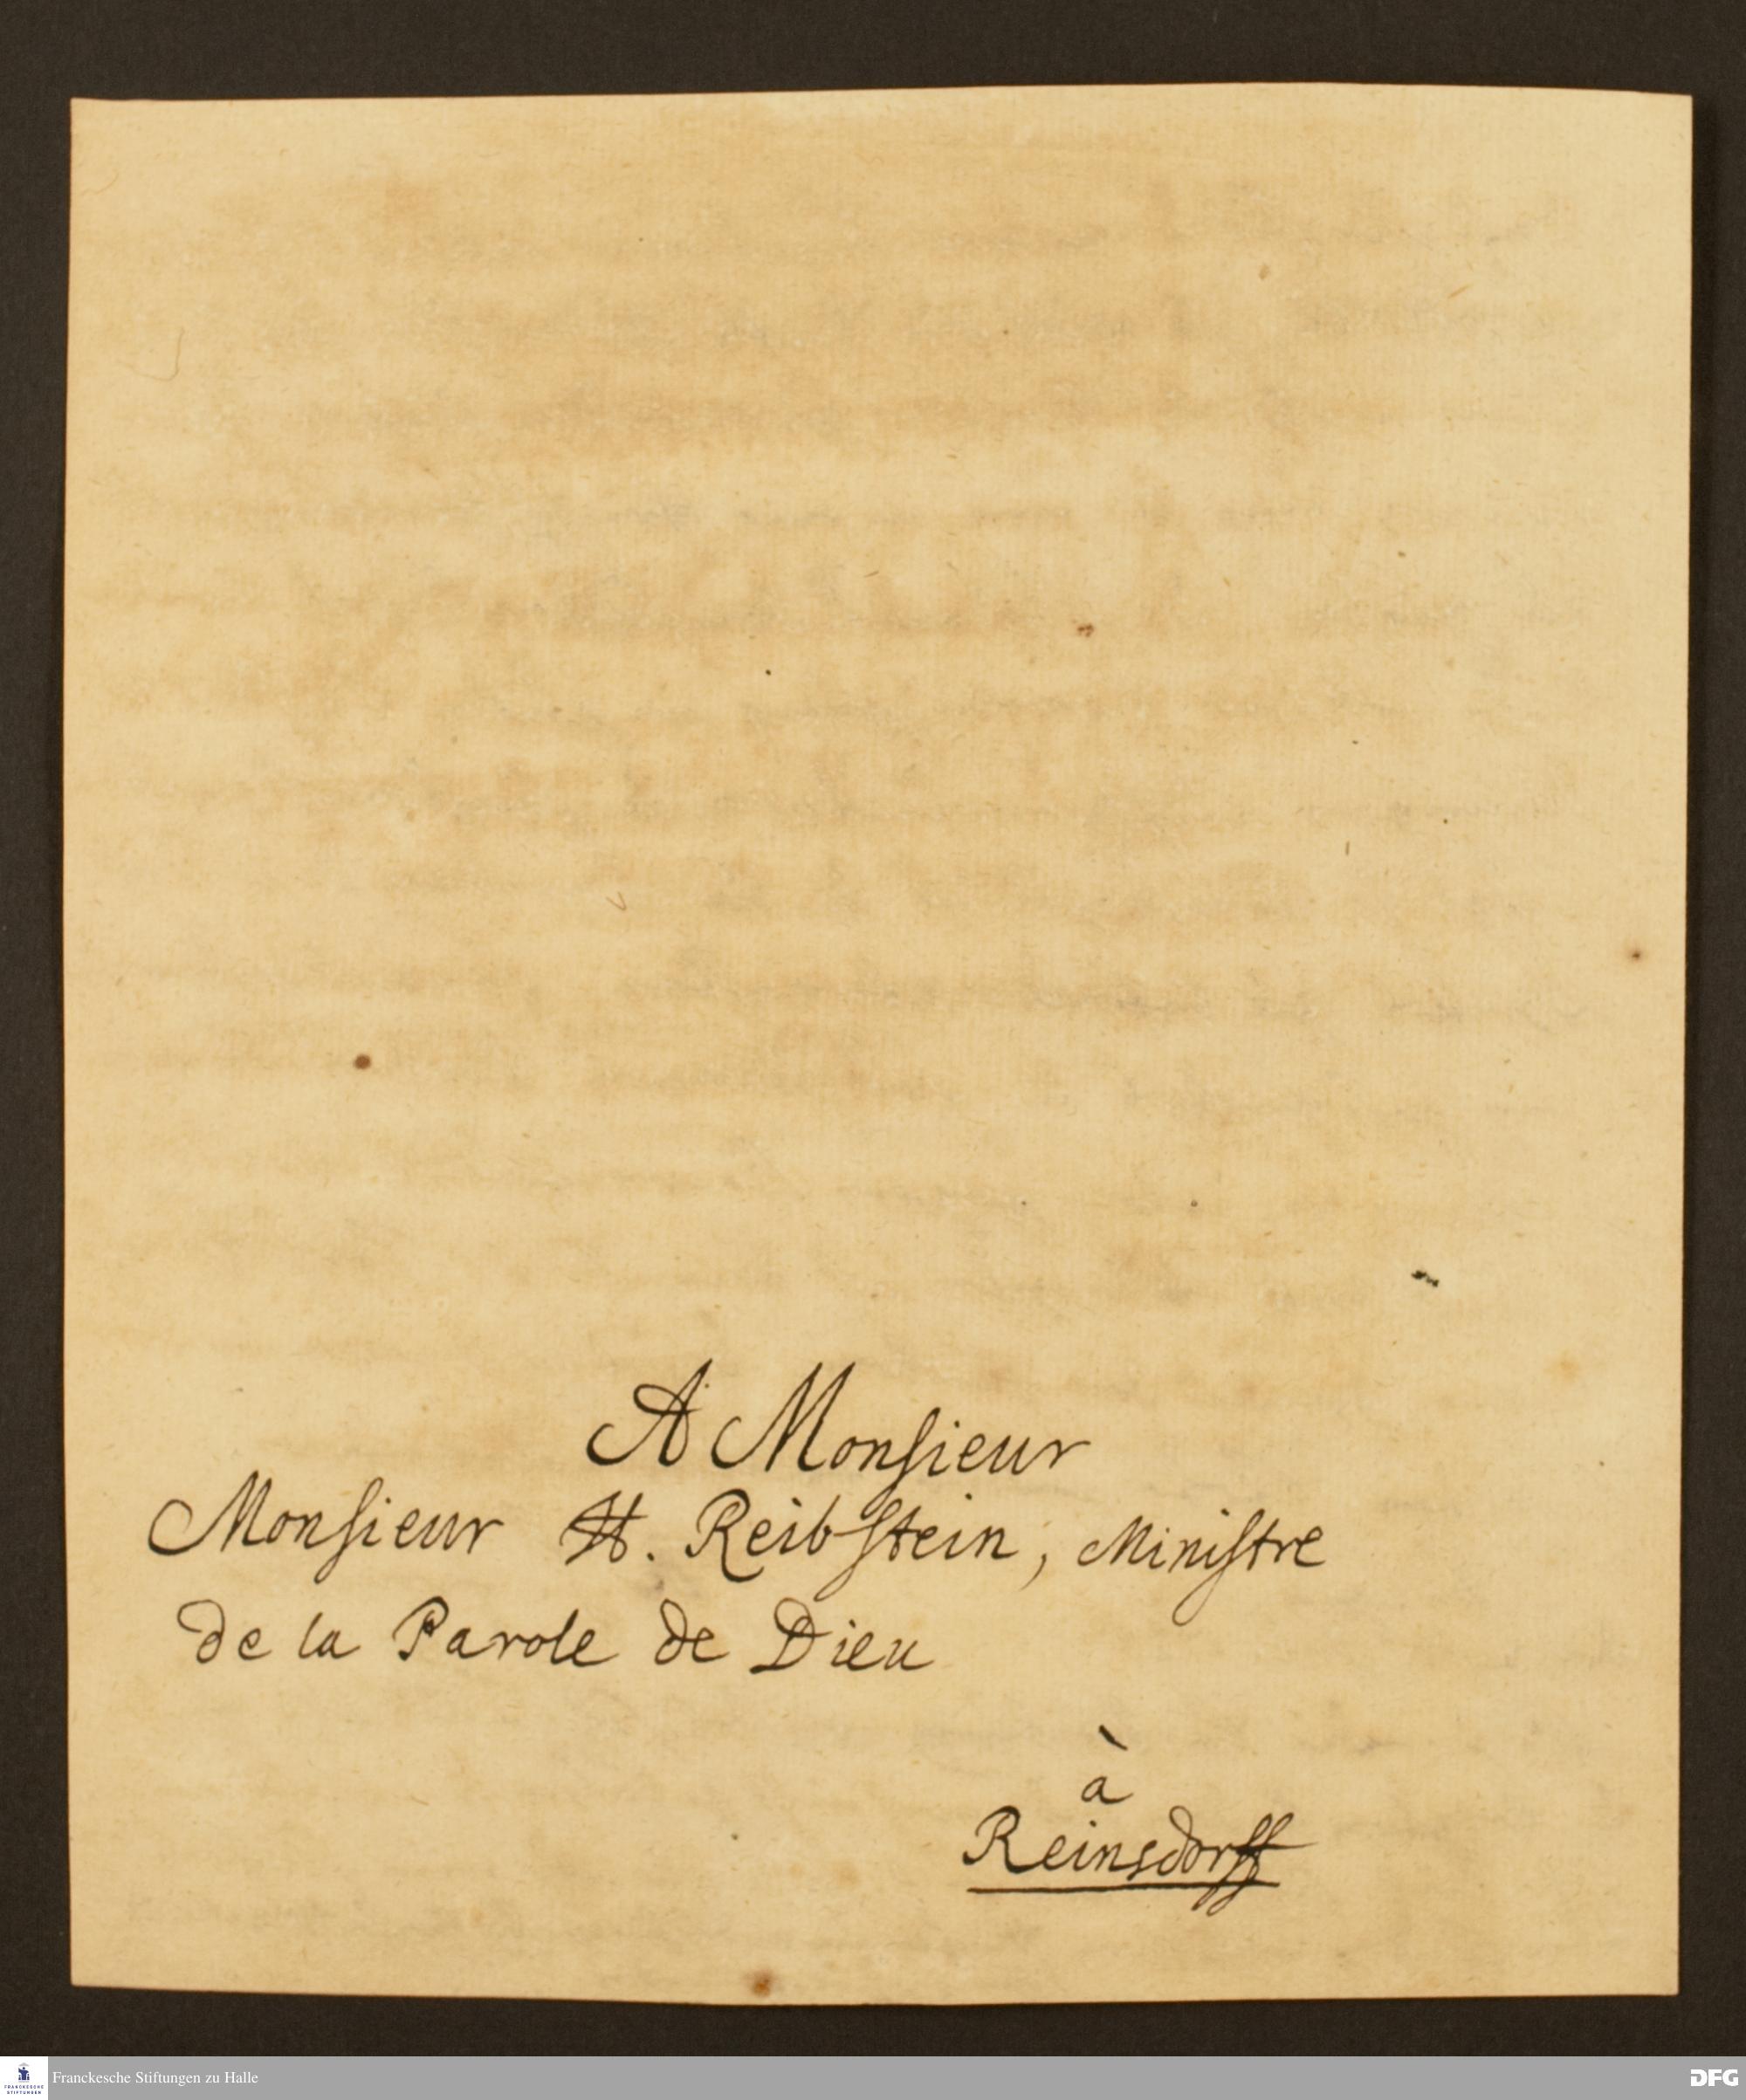 A Monsieur
Monsieur H. Reibstein, Ministre
de la Parole de Dieu
à
Reinsdorff
FRANCKESCHE
STIFTUNGEN
Franckesche Stiftungen zu Halle
DFG